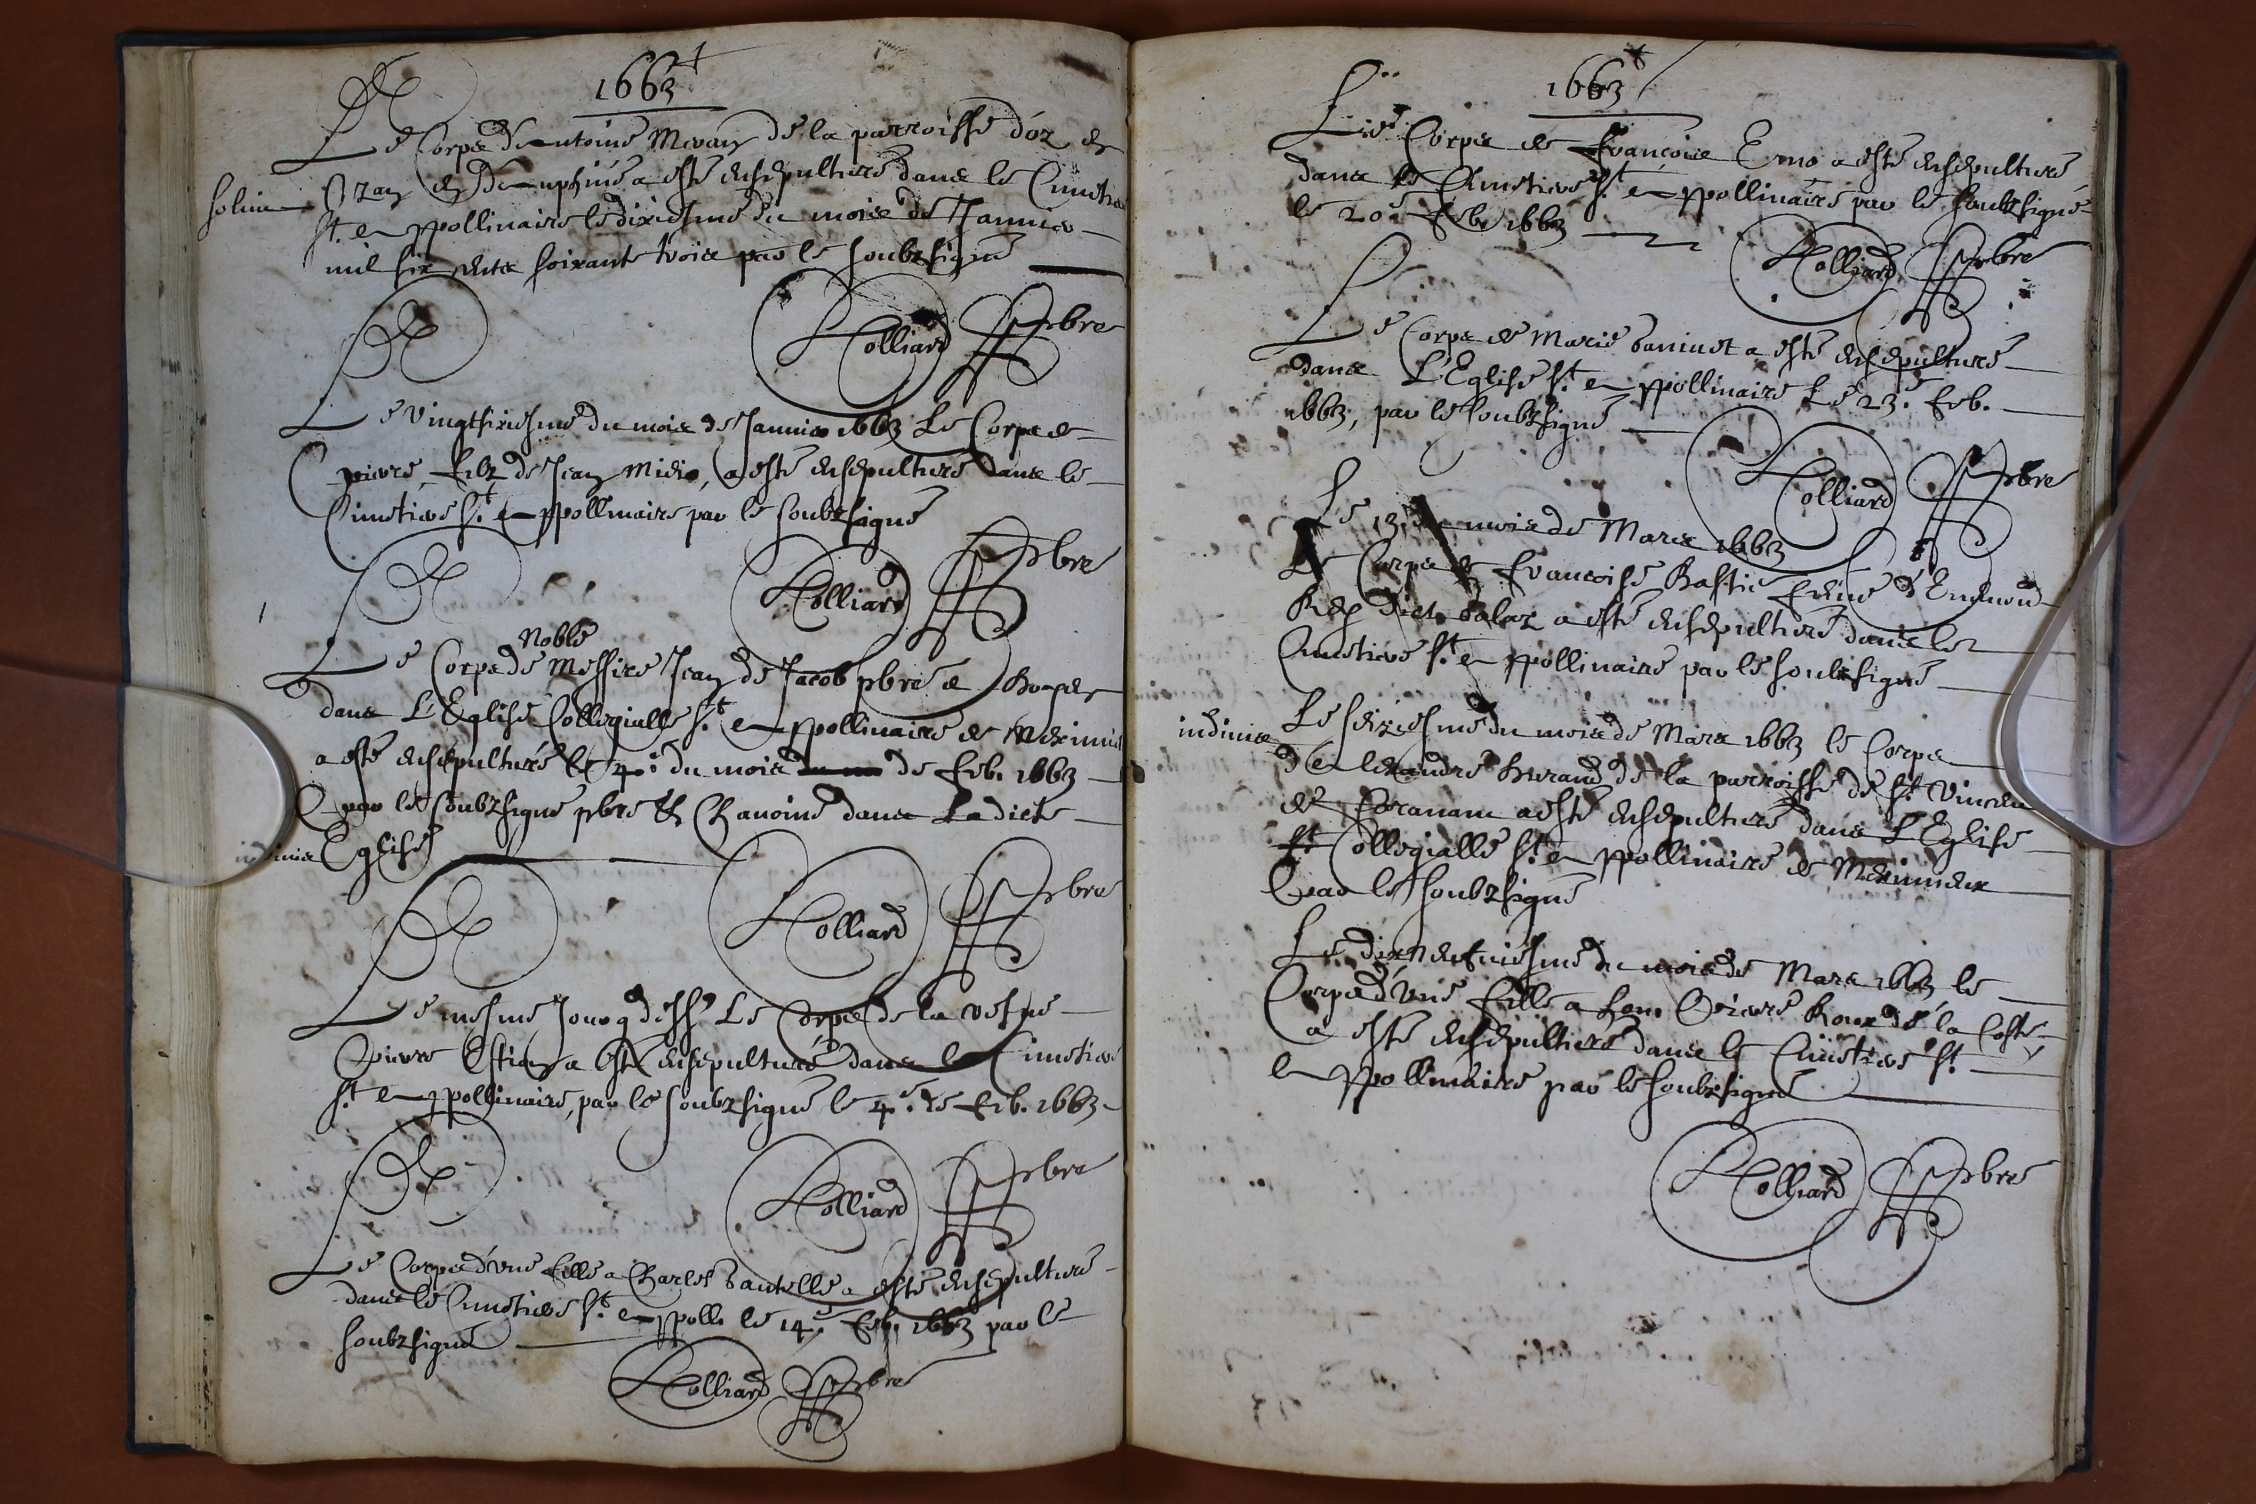 1663
Le Corps d'Antoine Mevan de la parroisse d'oz en
solvit
Ozan en Dauphiné a esté ensepulturé dans le Cimetiere
St. Appollinaire le dixiesme du mois de Janvier
mil six cents soixante trois par le soubzsigné
Colliard pbre
Le vingtsixiesme du mois de Janvier 1663 Le Corps de
pierre filz de Jean a esté ensepulturé dans le
Cimetiere St. Appollinaire par le soubzsigné
Colliard pbre
Noble
Le Corps de Messire Jean de Jacob pbre e
dans L'Eglise Collegialle St Appollinaire de Meximieux
a esté ensepulturé le 4e. du mois de feb. 1663
par le soubzsigné pbre et Chanoine dans Ladicte
Eglise
Colliard pbre
Le mesme Jour q dess. Le Corps de la vefve
pierre a esté ensepulturé dans le Cimetiere
St Appollinaire, par le soubzsigné le 4e. de feb. 1663
Colliard pbre
Le Corps d'une fille a Charles a esté ensepulturé
dans le Cimetiere St. Appoll. le 14e. feb. 1663 par le
soubzsigné
Colliard pbre
1663
Le Corps de françoise a esté ensepulturé
dans le Cimetiere St Appollinaire par le soubzsigné
le 20e feb. 1663
Colliard pbre
Le Corps de Marie a esté ensepulturé
dans L'Eglise St Appollinaire Le 23e. feb.
1663, par le soubzsigné
Colliard pbre
Le 13e du mois de Mars 1663
Le Corps de françoise Bastie feme d'Enemond
Rey dict a esté ensepulturé dans le
Cimetiere St Appollinaire par le soubzsigné
Le seiziesme du mois de Mars 1663 le Corps
d'Alexandre de la parroisse de St. Vincent
de a esté ensepulturé dans L'Eglise
Collegialle St Appollinaire de Meximieux
par le soubzsigné
Le dixneufviesme du mois de Mars 1663 le
Corps d'une fille a feu Pierre Roux de la Coste
a esté ensepulturé dans le Cimetiere St.
Appollinaire par le soubzsigné
Colliard pbre